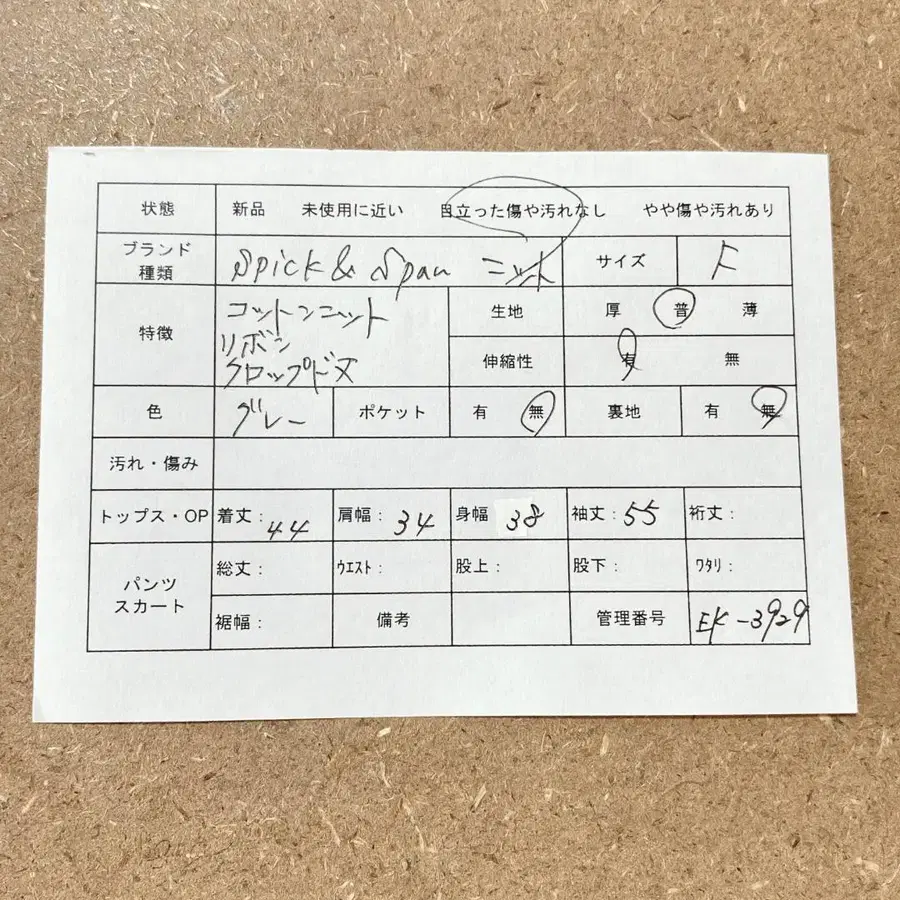 状態 新品 未使用に近い 目立った傷や汚れなし やや傷や汚れあり
ブランド 種類 Spick & Span ニット サイズ F
特徴 コットンニット
リボン
クロップド丈
生地 厚 普 薄
伸縮性 有 無
色 グレー ポケット 有 無 裏地 有 無
汚れ・傷み
トップス・OP 着丈: 44 肩幅: 34 身幅 38 袖丈: 55 裄丈:
パンツ スカート 総丈: ウエスト: 股上: 股下: ワタリ:
裾幅: 備考 管理番号 EK-3929